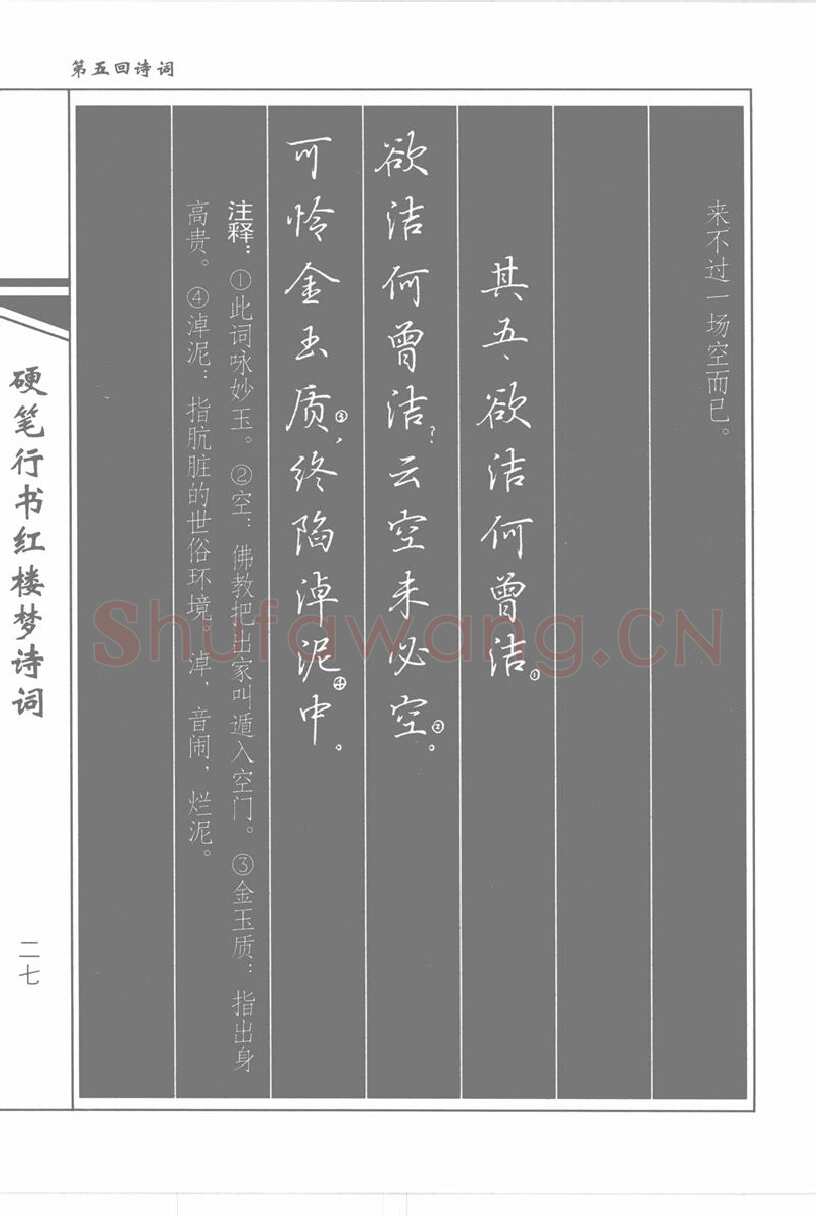 第五回诗词
来不过一场空而已。
其五、欲洁何曾洁①。
欲洁何曾洁？云空未必空②。
可怜金玉质③，终陷淖泥中④。
注释：①此词咏妙玉。②空：佛教把出家叫遁入空门。③金玉质：指出身
高贵。④淖泥：指肮脏的世俗环境。淖，音闹，烂泥。
硬笔行书红楼梦诗词
二七
Shufawang.CN